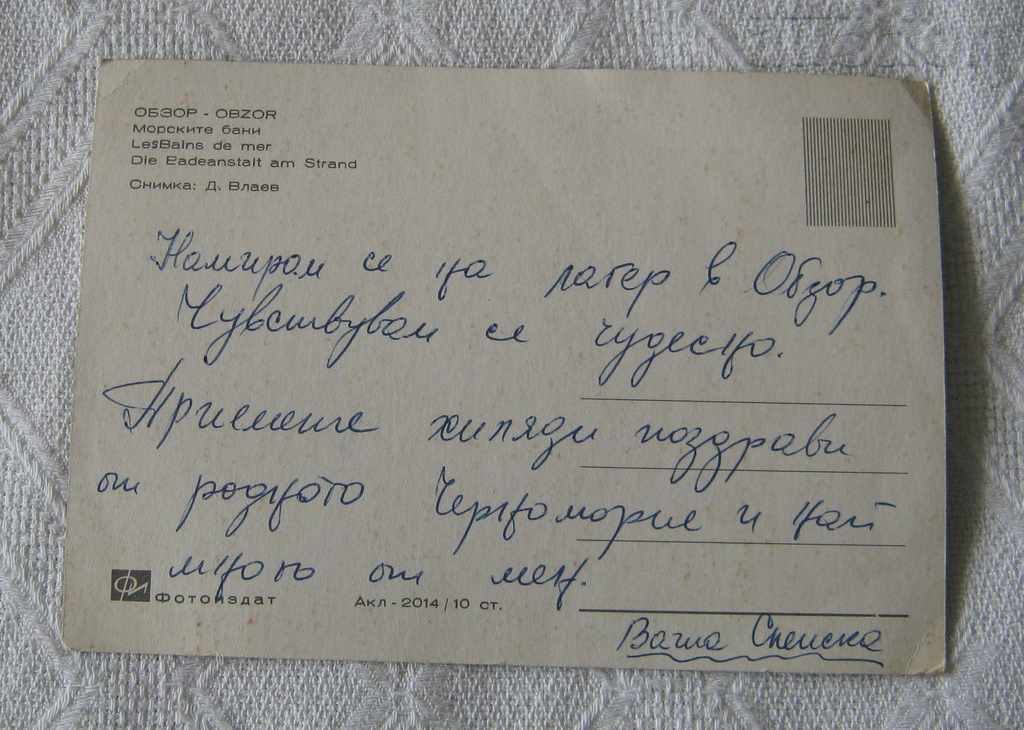 ОБЗОР - OBZOR
Морските бани
LesBains de mer
Die Eadeanstalt am Strand
Снимка: Д. Влаев
Намирам се на лагер в Обзор.
Чувствувам се чудесно.
Приемете хиляди поздрави
от родното Черноморие и най
много от мен.
ФИ Фотоиздат
Акл - 2014 / 10 ст.
Ваша